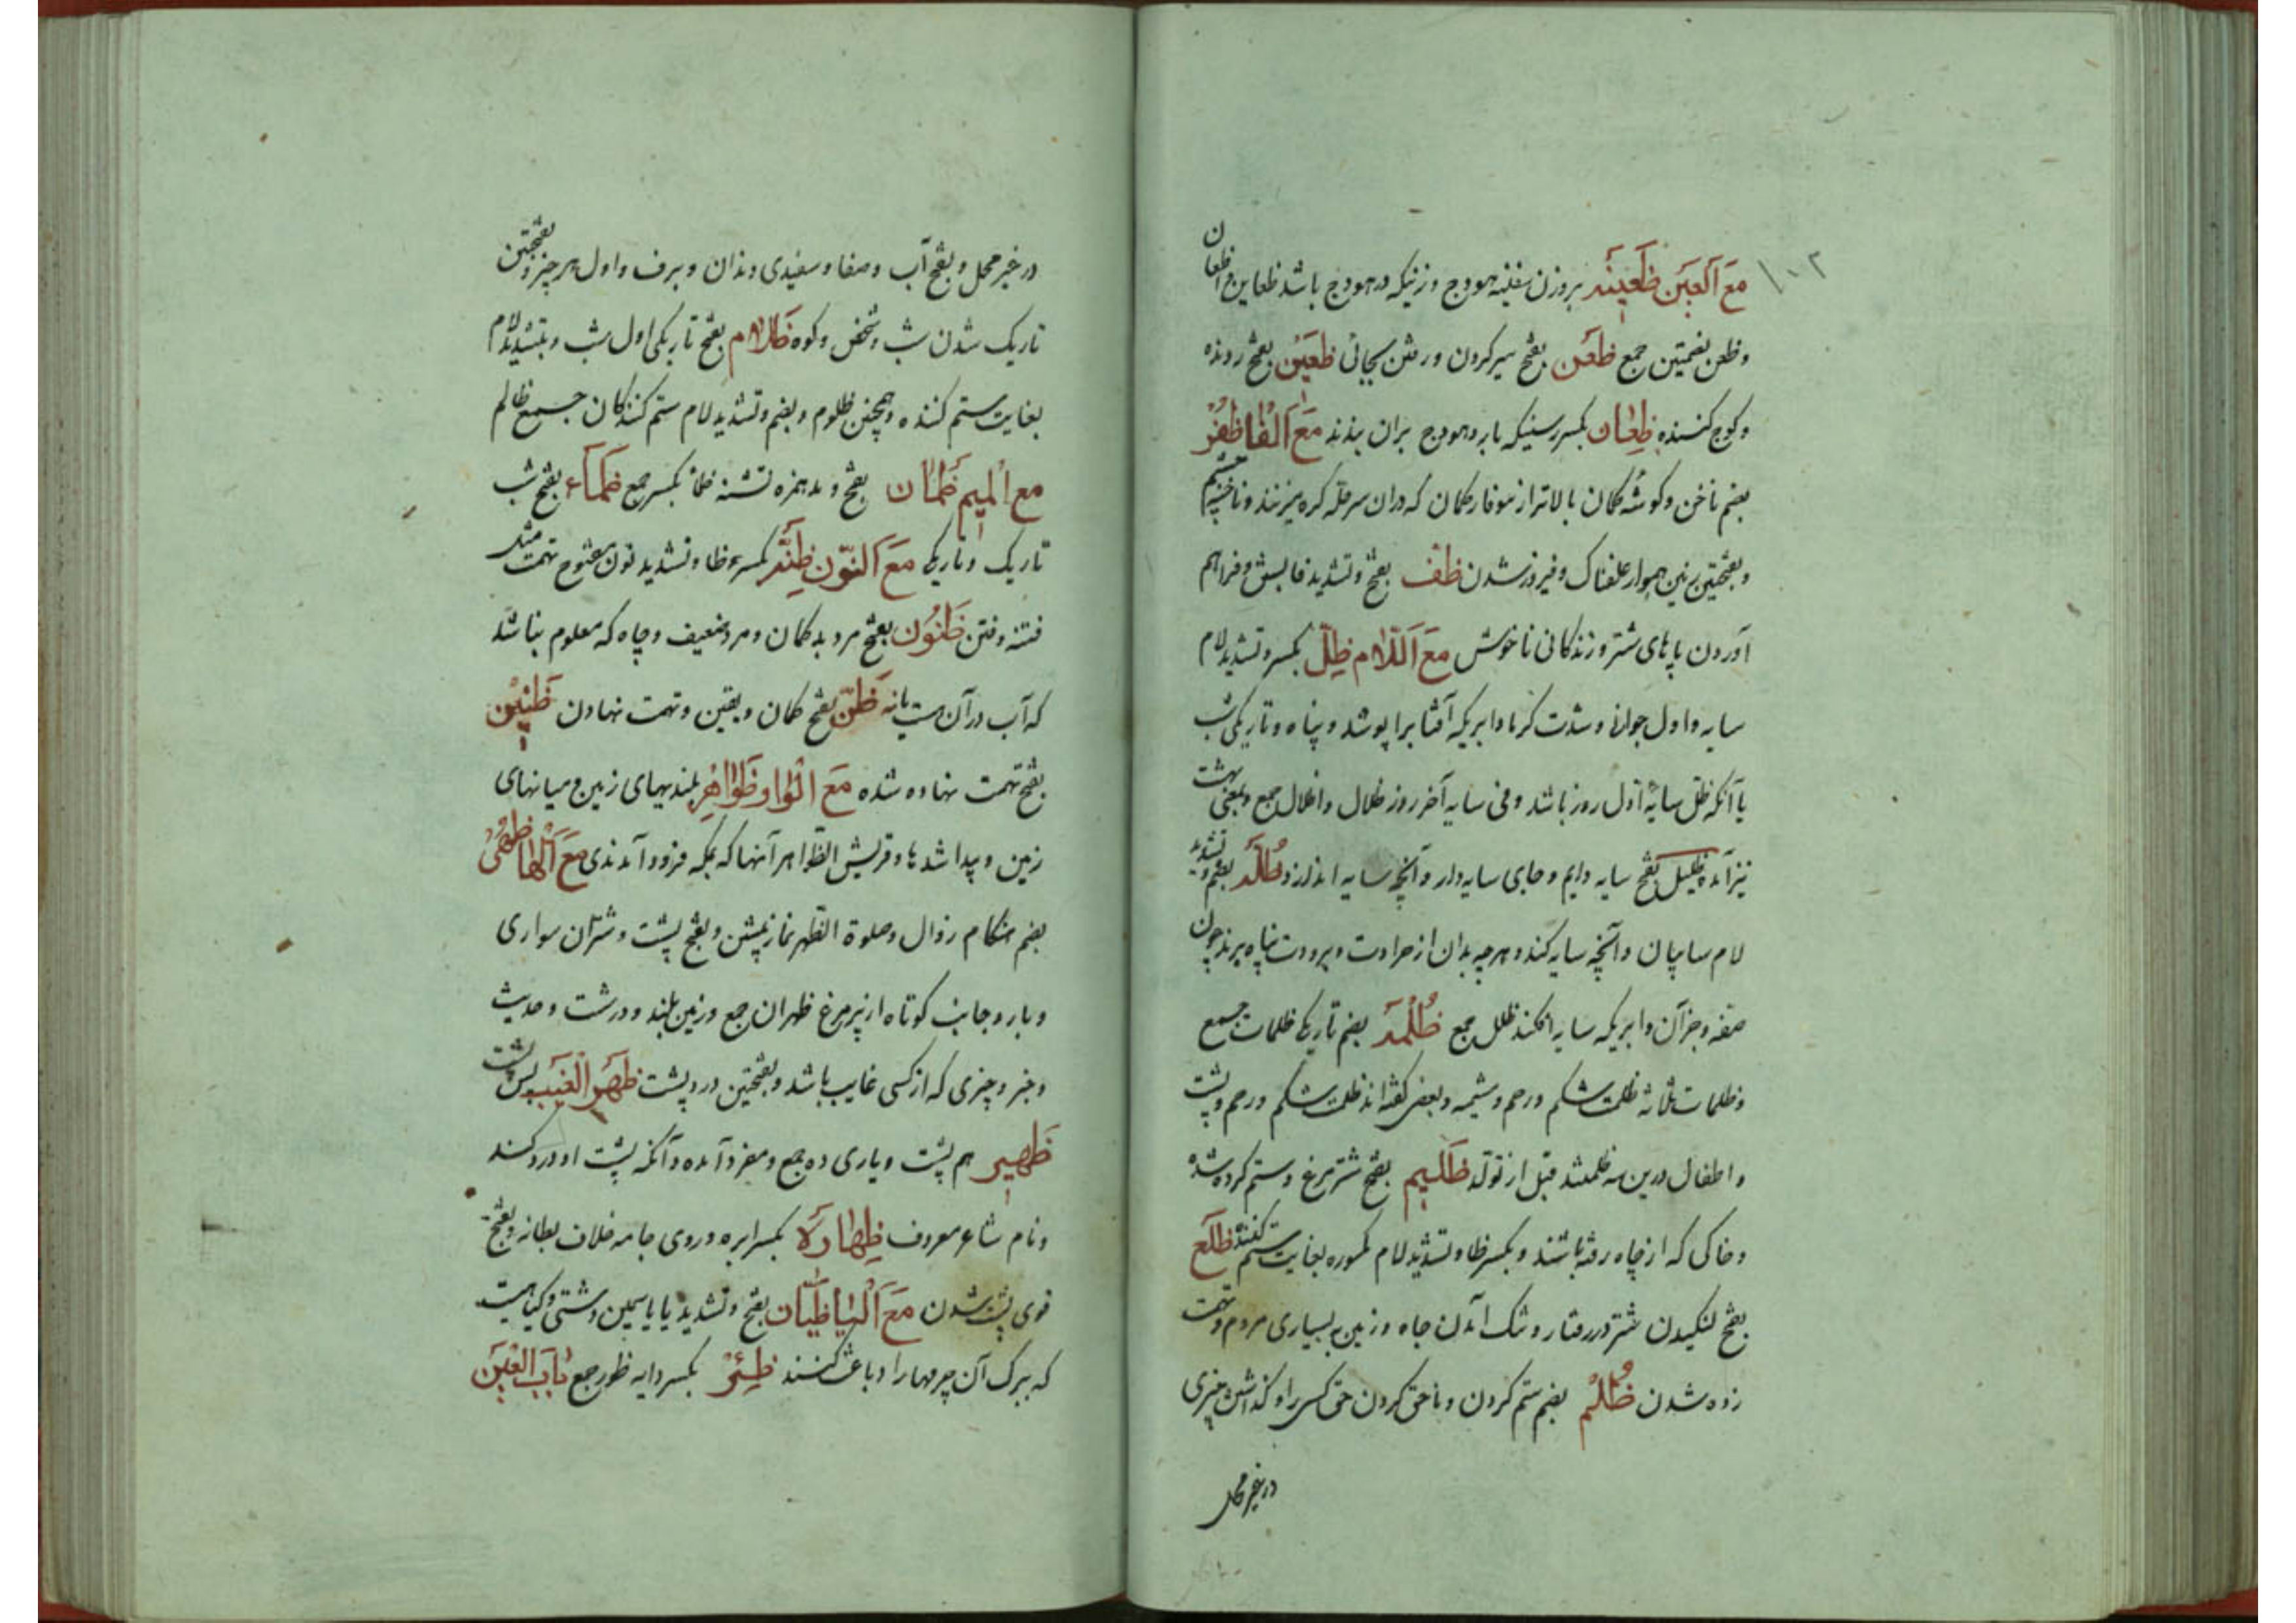 ۱۰۲
مَعَ اَلْعَین ظَعینَه بروزن سفینه هودج و زنیکه در هودج باشد ظعاین و اظعان
و ظعن بضمتین جمع ظعن بفتح سیر کردن و رفتن بجائی ظعین بفتح رونده
و کوچ کننده ظِعان بکسر رسنیکه بار و هودج بران بندند مَعَ اَلْفا ظُفُر
بضم ناخن و کوشه کمان بالاتر از سوفار کمان که دران سر چله کره میزنند و ناخنه چشم
و بفتحتین زمین هموار علفناک و فیروز شدن ظف بفتح و تشدید فا بستن و فراهم
آوردن پاهای شتر و زندکانی ناخوش مَعَ اَللّام ظِلّ بکسر و تشدید لام
سایه و اول جوانی و شدت کرما و ابریکه آفتابرا پوشد و پناه و تاریکی شب
یا آنکه ظل سایهٔ اول روز باشد و فی سایه آخر روز ظلال و اظلال جمع و بمعنی بهشت
نیز آمده ظلیل بفتح سایه دایم و جای سایه‌دار و آنچه سایه اندازد ظُلَّه بضم و تشدید
لام سایبان و آنچه سایه کند و هر چه بدان از حرارت و برودت پناه برند چون
صفه و جز آن و ابریکه سایه افکند ظلل جمع ظُلْمَه بضم تاریکی ظلمات جمع
و ظلمات ثلاثه ظلمت شکم و رحم و مشیمه و بعضی کفته‌اند ظلمت شکم و رحم و پشت
و اطفال درین سه ظلمتند قبل از تولد ظَلیم بفتح شتر مرغ و ستم کرده شده
و خاکی که از چاه رفته باشند و بکسر ظا و تشدید لام مکسوره بغایت ستم کننده ظلع
بفتح لنکیدن شتر در رفتار و تنک آمدن جاه و زمین به بسیاری مردم و تهمت
زده شدن ظُلْم بضم ستم کردن و ناحق کردن حق کسی را و کذاشتن چیزی
در غیر محل
در غیر محل و بفتح آب و صفا و سفیدی دندان و برف و اول هر چیز و بفتحتین
تاریک شدن شب و شخص و کوه ظَلام بفتح تاریکی اول شب و بتشدید لام
بغایت ستم کننده و همچنین ظلوم و بضم و تشدید لام ستم کنندکان جمع ظالم
مع اَلْمیم ظَمْان بفتح و مد همزه تشنه ظماء بکسر جمع ظَمآء بفتح شب
تاریک و تاریکی مَعَ اَلنّون ظِنَّه بکسره ظا و تشدید نون مفتوح تهمت مثل
فتنه و فتن ظَنُون بفتح مرد بدکمان و مرد ضعیف و چاه که معلوم نباشد
که آب در آن هست یا نه ظَنّ بفتح کمان و یقین و تهمت نهادن ظَنین
بفتح تهمت نهاده شده مَعَ اَلْواو ظَواهِر بلندیهای زمین و میانهای
زمین و پیدا شدها و قریش الظواهر آنها که بمکه فرود آمدندی مَعَ اَلْها ظُهْر
بضم هنکام زوال و صلوة الظهر نماز پیشین و بفتح پشت و شتران سواری
و بار و جانب کوتاه از پر مرغ ظهران جمع و زمین بلند و درشت و حدیث
و خبر و چیزی که از کسی غایب باشد و بفتحتین درد پشت ظَهر الْغیب پس پشت
ظَهیر هم پشت و یاری ده جمع و مفرد آمده و آنکه پشت او درد کند
و نام شاعر معروف ظِهارَه بکسر ابره و روی جامه خلاف بطانه و بفتح
قوی پشت شدن مَعَ اَلْیا ظَیّان بفتح و تشدید یا یاسمین دشتی و کیاهیست
که ببرک آن چرمها را دباغت کنند ظِئْر بکسر دایه ظور جمع بابُ الْعَین